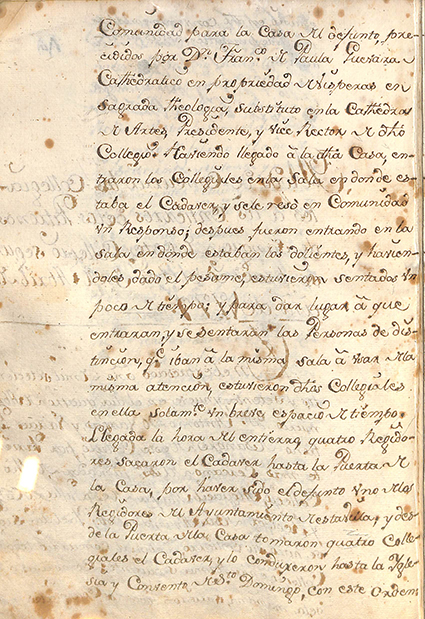 Comunidad para la Casa del defunto, pre-
cididos por Dn. Franco. de Paula
Cathedratico en propriedad de Visperas en
Sagrada Theologia, Substituto en la Cathedra
de Artes, Presidente, y Vice Rector de dho
Collegio. Haviendo llegado â la dha Casa, en-
traron los Collegiales en la Sala en donde es-
taba el Cadaver, y se le resò en Comunidad
vn Responso; despues fueron entrando en la
Sala en dònde estaban los dolientes, y havien-
doles dado el pesame, estuvieron sentados vn
poco de tiempo; y para dar lugar â que
entraran, y se sentaran las Personas de dis-
tincion, qe. iban â la misma Sala â usar de la
misma atencion, estuvieron dhos Collegiales
en ella solamte. vn breve espacio de tiempo.
Llegada la hora del entierro, quatro Regido-
res sacaron el Cadaver hasta la Puerta de
la Casa, por haver sido el defunto vno de los
Regidores del Ayuntamiento de esta Villa, y des-
de la Puerta de la Casa tomaron quatro Colle-
giales el Cadaver, y lo conduxeron hasta la Ygle-
sia y Convento de Sto. Domingo, con este Orden.